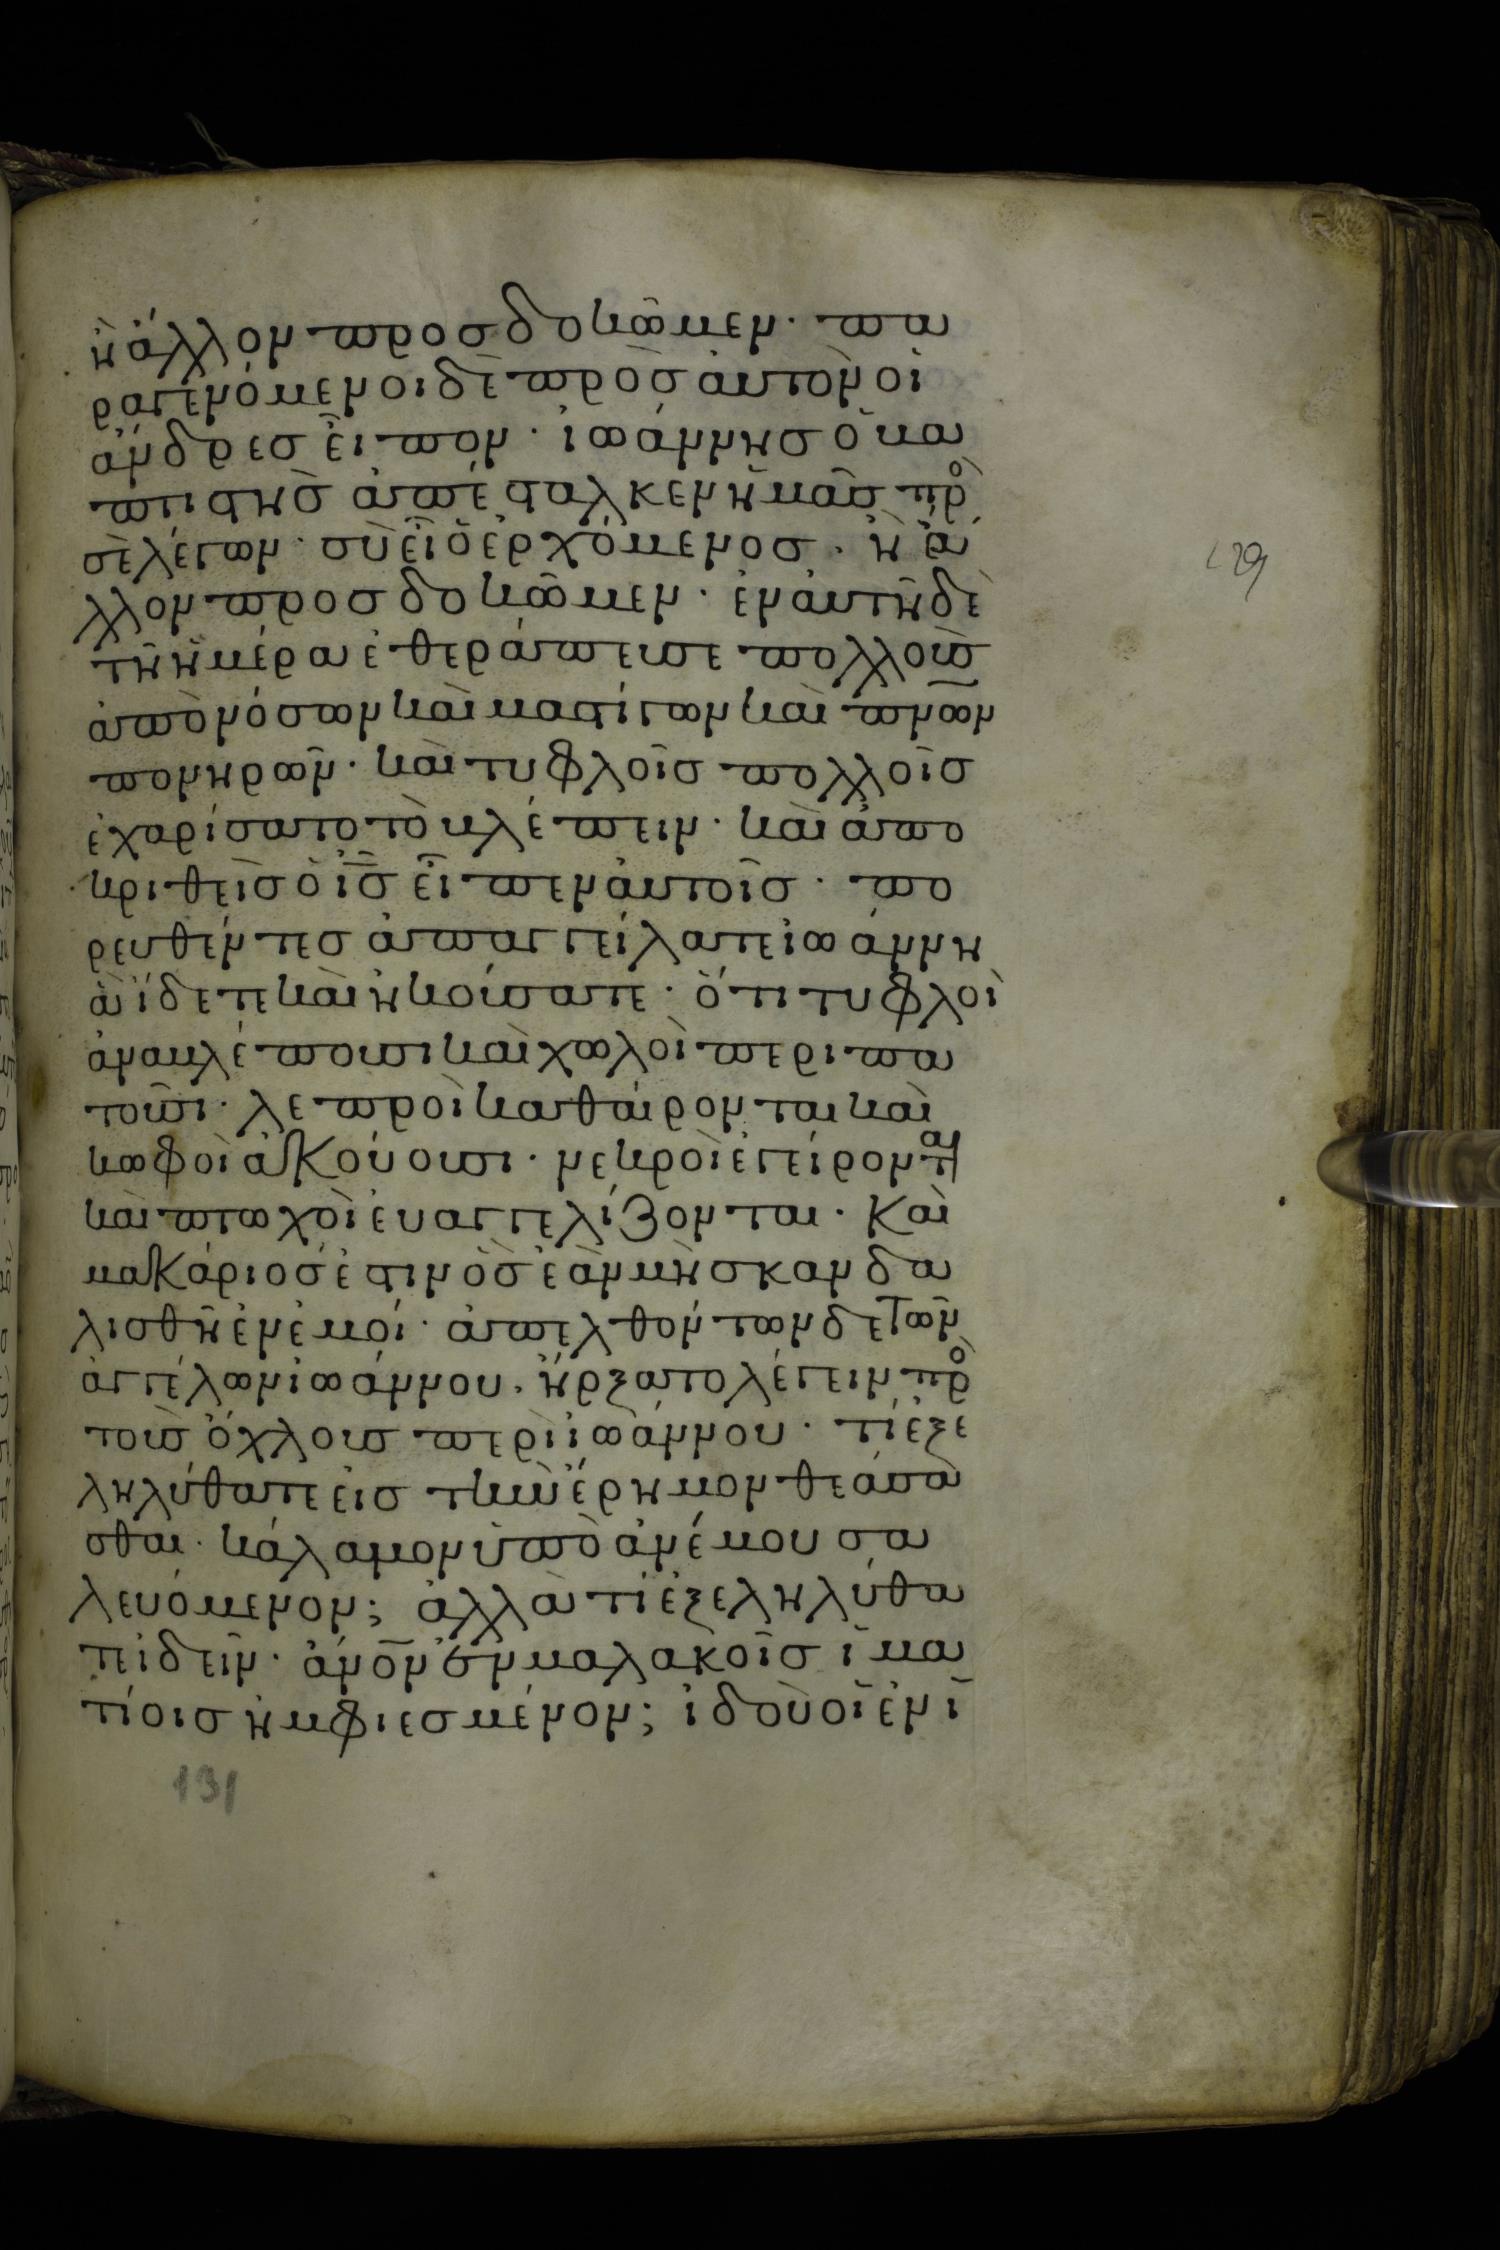 ἢ ἄλλον προσδοκῶμεν· πα
ραγενόμενοι δὲ πρὸς αὐτὸν οἱ
ἄνδρες εἶπον· ἰωάννης ὁ βα
πτιστὴς ἀπέσταλκεν ἡμᾶς πρὸς
σὲ λέγων· σὺ εἶ ὁ ἐρχόμενος· ἢ ἄ
λλον προσδοκῶμεν· ἐν αὐτῇ δὲ
τῇ ἡμέρα ἐθεράπευσε πολλοὺς
ἀπὸ νόσων καὶ μαστίγων καὶ πνῶν
πονηρῶν· καὶ τυφλοῖς πολλοῖς
ἐχαρίσατο τὸ βλέπειν· καὶ ἀπο
κριθεὶς ὁ ις εἶπεν αὐτοῖς· πο
ρευθέντες ἀπαγγείλατε ἰωάννη
ἃ ἴδετε καὶ ἠκούσατε· ὅτι τυφλοὶ
ἀναβλέπουσι καὶ χωλοὶ περιπα
τοῦσι· λεπροὶ καθαίρονται καὶ
κωφοὶ ἀκούουσι· νεκροὶ ἐγείρονται
καὶ πτωχοὶ εὐαγγελίζονται· Καὶ
μακάριός ἐστιν ὃς ἐὰν μὴ σκανδα
λισθῇ ἐν ἐμοί· ἀπελθόντων δὲ τῶν
ἀγγέλων ἰωάννου· ἤρξατο λέγειν πρὸς
τοὺς ὄχλους περὶ ἰωάννου· τί ἐξε
ληλύθατε εἰς τὴν ἔρημον θεάσα
σθαι· κάλαμον ὑπὸ ἀνέμου σα
λευόμενον; ἀλλὰ τί ἐξεληλύθα
τε ἰδεῖν· ἄνον ἐν μαλακοῖς ἱμα
τίοις ἠμφιεσμένον; ἰδοὺ οἱ ἐν ἱ
131